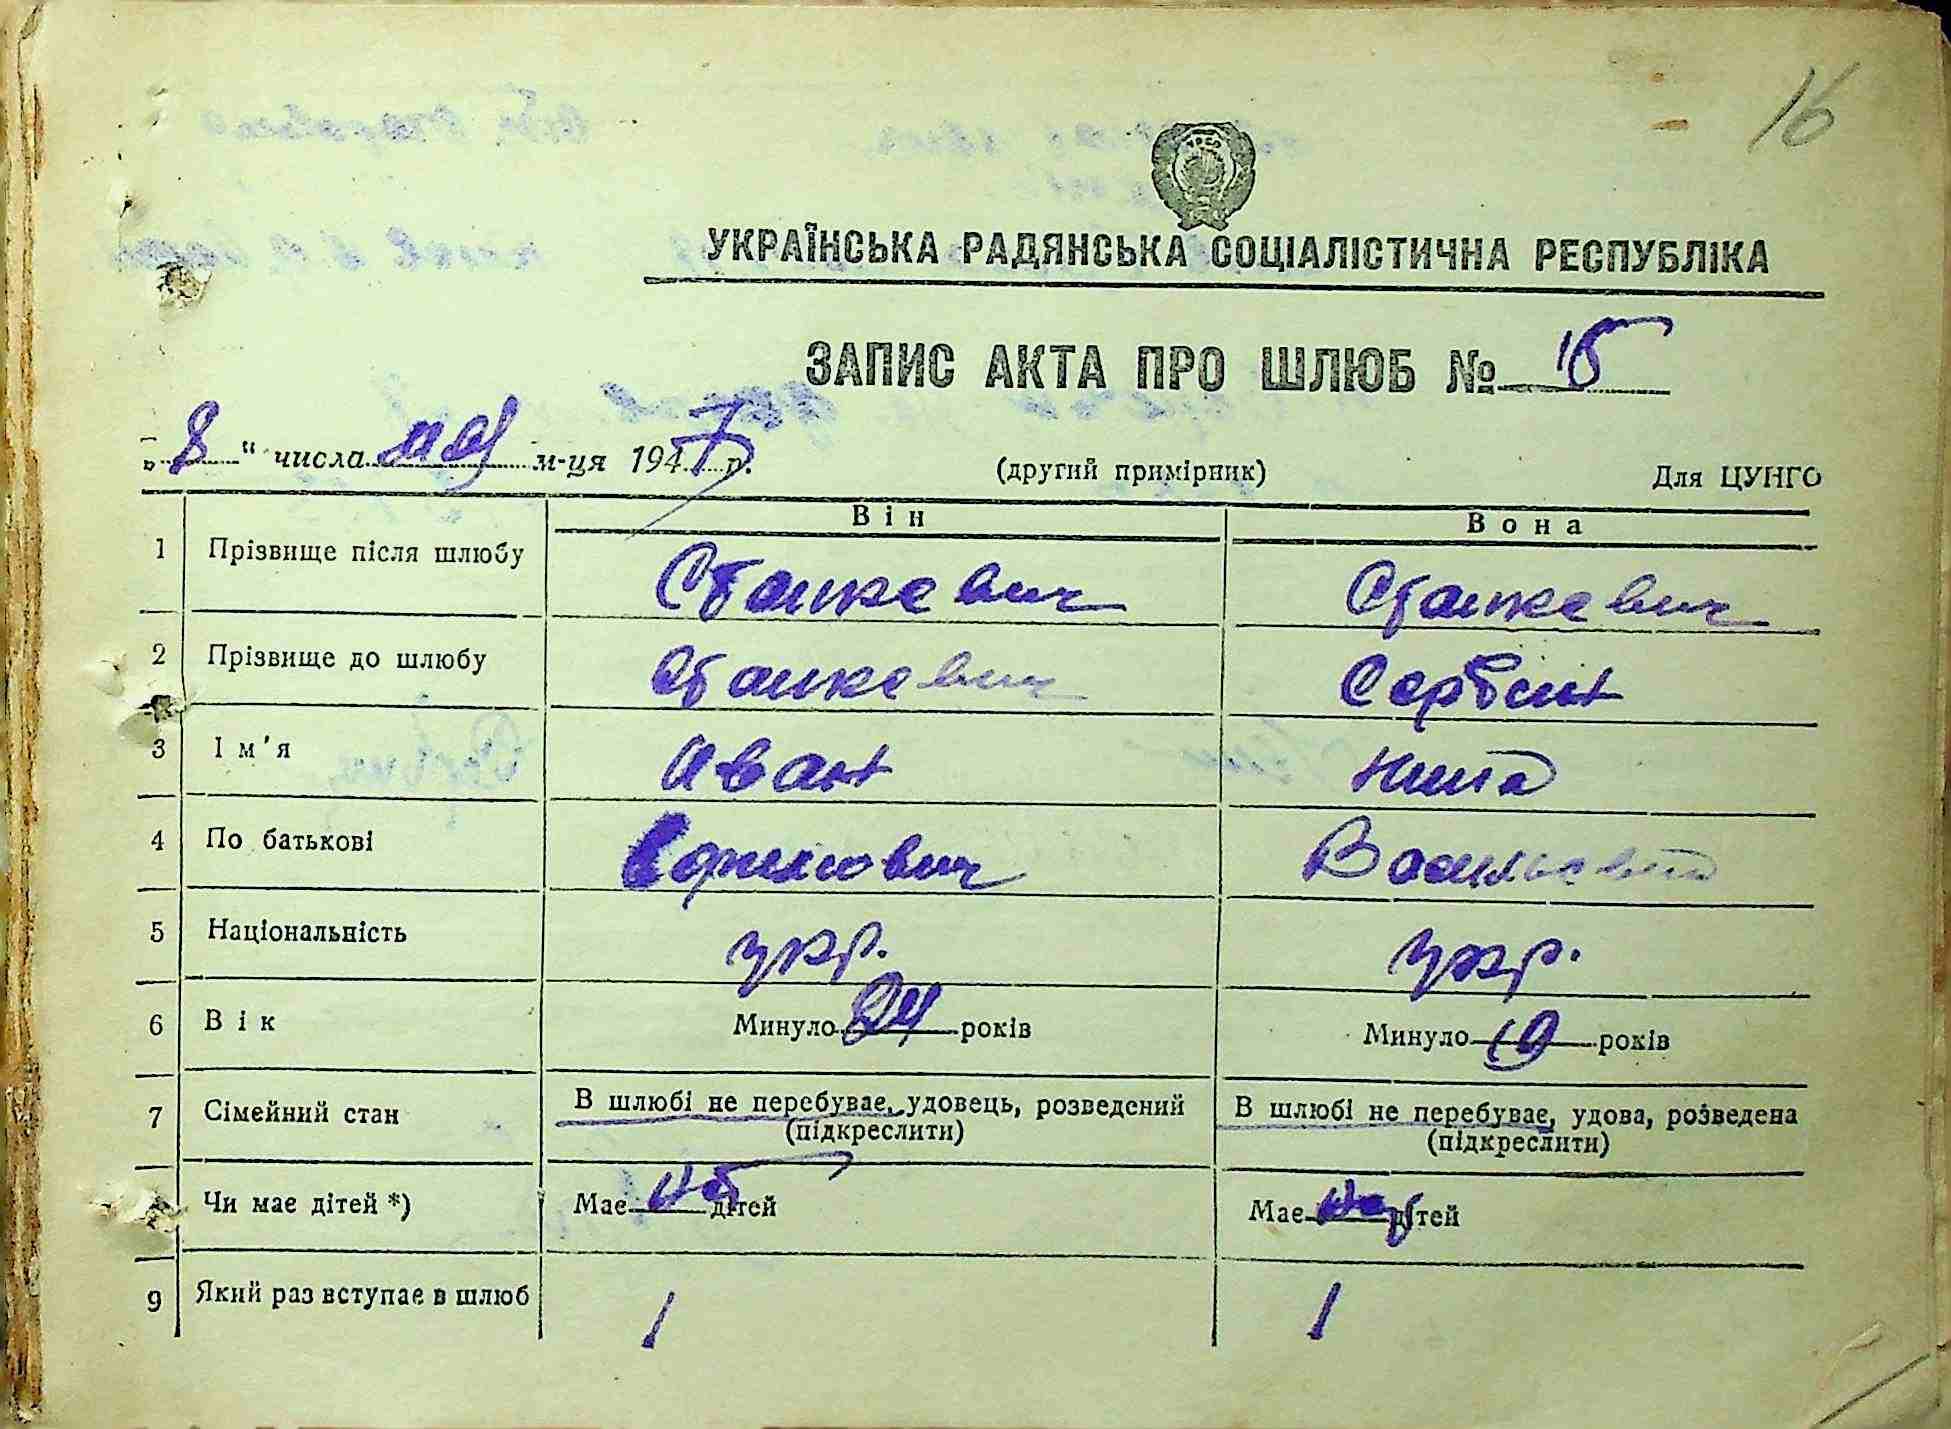 16
УКРАЇНСЬКА РАДЯНСЬКА СОЦІАЛІСТИЧНА РЕСПУБЛІКА
ЗАПИС АКТА ПРО ШЛЮБ № 15
„8“ числа мая м-ця 1947 р. (другий примірник) Для ЦУНГО
Він Вона
1 Прізвище після шлюбу Станкевич Станкевич
2 Прізвище до шлюбу Станкевич Сербин
3 Ім'я Иван Нина
4 По батькові Ефимович
5 Національність укр. укр.
6 Вік Минуло 24 років Минуло 19 років
7 Сімейний стан В шлюбі не перебуває, удовець, розведений В шлюбі не перебуває, удова, розведена
(підкреслити) (підкреслити)
Чи має дітей *) Має нет дітей Має нет дітей
9 Який раз вступає в шлюб 1 1